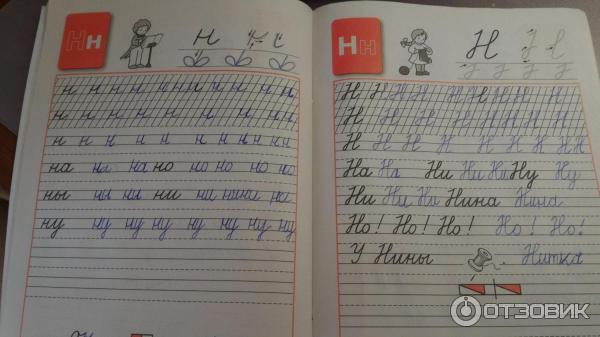 Нн
н
н н н н н н н н н н н
н н н н н н н н
н н н н н н н н н н
на на на но но но но но
ны ны ны ни ни нини ни
ну ну ну ну ну ну ну
Нн
Н
Н Н Н Н Н Н Н Н Н Н
Н Н Н Н Н Н Н
Н Н Н Н Н Н Н Н Н Н
На На Ни Ни Ни Ну Ну
Ни Ни Ни Нина Нина
Но! Но! Но! Но! Но!
У Нины Нитка
ОТЗОВИК